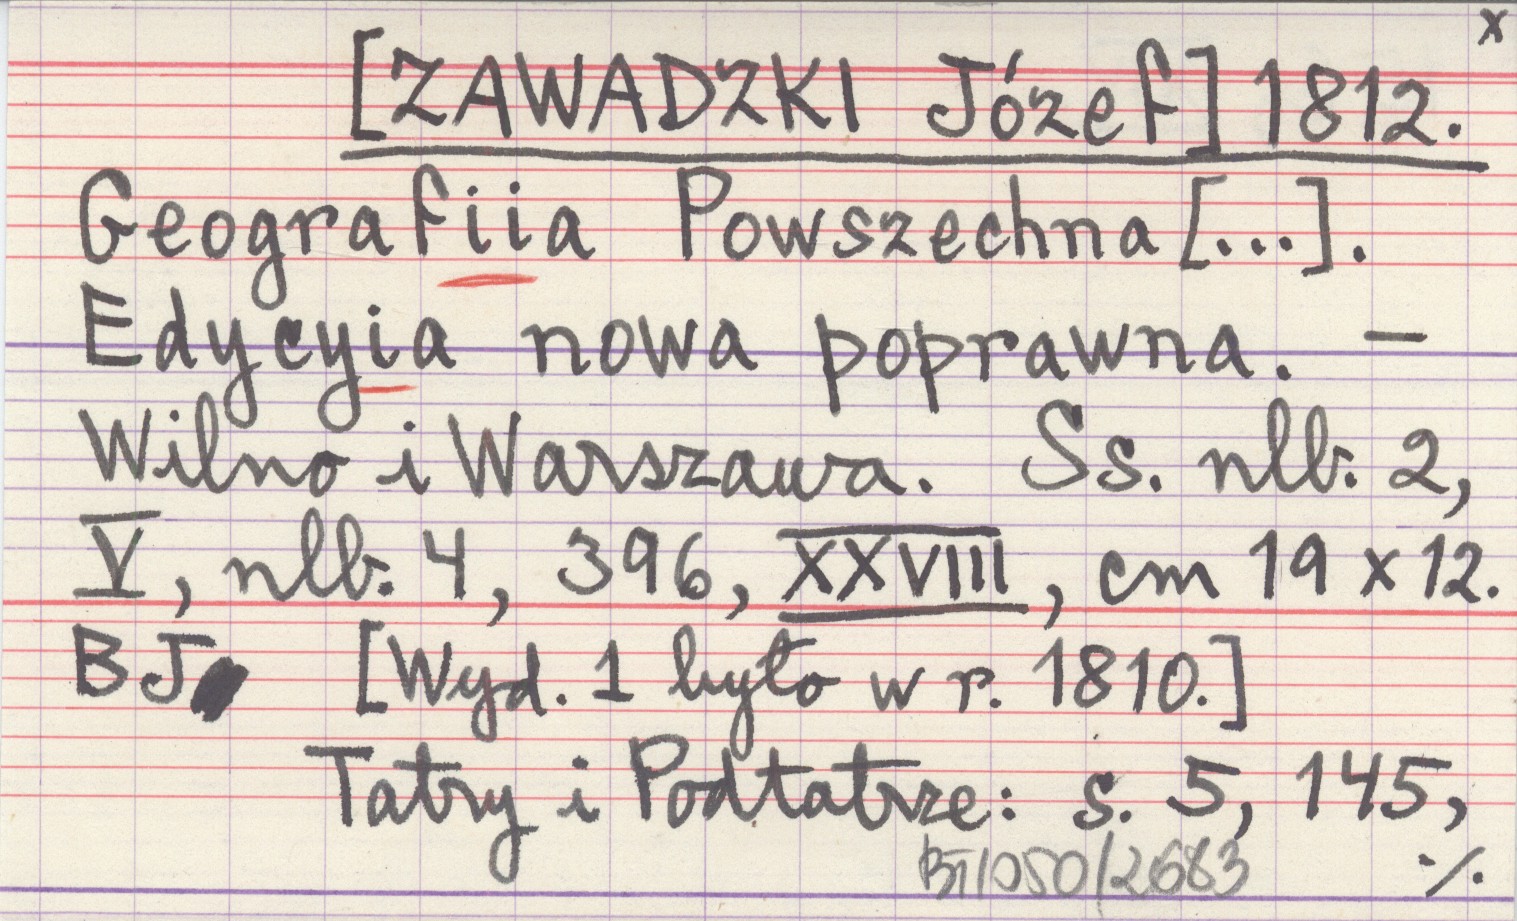 x
[ZAWADZKI Józef] 1812.
Geografiia Powszechna [...].
Edycyia nowa poprawna. —
Wilno i Warszawa. Ss. nlb. 2,
V, nlb. 4, 396, XXVIII, cm 19 x 12.
BJ [Wyd. 1 było w r. 1810.]
Tatry i Podtatrze: s. 5, 145,
BT/050/2683 ·/.